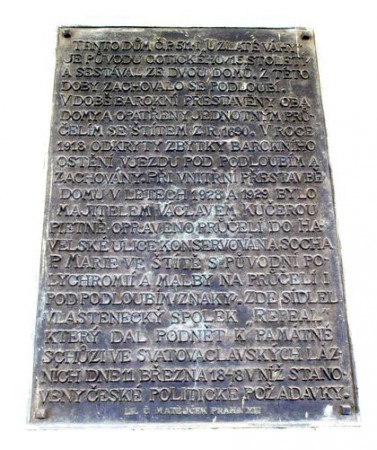 TENTO DŮM Č.P. 511-I „U ZLATÉ VÁHY“
JE PŮVODU GOTICKÉHO Z 15. STOLETÍ
A SESTÁVAL ZE DVOU DOMŮ. Z TÉTO
DOBY ZACHOVALO SE PODLOUBÍ.
V DOBĚ BAROKNÍ PŘESTAVĚNY OBA
DOMY A OPATŘENY JEDNOTNÝM PRŮ-
ČELÍM SE ŠTÍTEM Z R. 1690. V ROCE
1918 ODKRYTY ZBYTKY BAROKNÍHO
OSTĚNÍ, VJEZDU POD PODLOUBÍM A
ZACHOVÁNY. PŘI VNITŘNÍ PŘESTAVBĚ
DOMU V LETECH 1928 A 1929 BYLO
MAJITELEM VÁCLAVEM KUČEROU
PIETNĚ OPRAVENO PRŮČELÍ DO HA-
VELSKÉ ULICE, KONSERVOVÁNA SOCHA
P. MARIE VE ŠTÍTĚ S PŮVODNÍ PO-
LYCHROMIÍ A MALBY NA PRŮČELÍ I
POD PODLOUBÍM. V ZNAKY. ZDE SÍDLEL
VLASTENECKÝ SPOLEK „REPEAL“,
KTERÝ DAL PODNĚT K PAMÁTNÉ
SCHŮZI VE SVATOVÁCLAVSKÝCH LÁZ-
NÍCH DNE 11. BŘEZNA 1848 V NÍŽ STANO-
VENY ČESKÉ POLITICKÉ POŽADAVKY.
LIL Č. MATEJČEK PRAHA XII